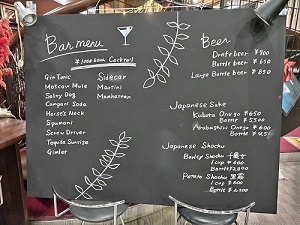 Bar menu
¥1000 Each Cocktail
Gin Tonic
Moscow Mule
Salty Dog
Campari Soda
Horse's Neck
Spumoni
Screw Driver
Tequila Sunrise
Gimlet
Sidecar
Martini
Manhattan
Beer
Draft beer ¥900
Bottle beer ¥650
Large Bottle beer ¥850
Japanese Sake
Kubota One go ¥650
Bottle ¥5500
Arabashiri One go
Bottle
Japanese Shochu
Barley Shochu
1 cup
Bottle
Potato Shochu
1 cup
Bottle